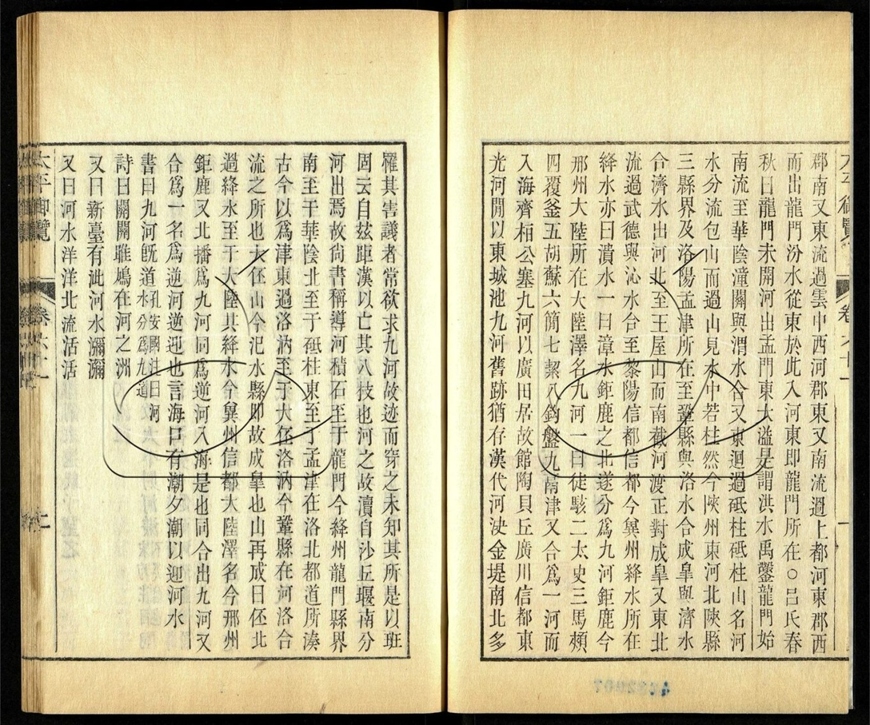 郡南又東流過雲中西河郡東又南流過上郡河東郡西
而出龍門汾水從東於此入河東即龍門所在○呂氏春
秋曰龍門未開河出孟門東大溢是謂洪水禹鑿龍門始
南流至華陰潼關與渭水合又東迴過砥柱砥柱山名河
水分流包山而過山見水中若柱然今陝州東河北陝縣
三縣界及洛陽孟津所在至鞏縣與洛水合成皐與濟水
合濟水出河北至王屋山而南截河渡正對成皐又東北
流過武德與沁水合至黎陽信都信都今兾州絳水所在
絳水亦曰瀆水一曰漳水鉅鹿之北遂分爲九河鉅鹿今
邢州大陸所在大陸澤名九河一曰徒駭二太史三馬頰
四覆釜五胡蘇六簡七絜八鈎盤九鬲津又合爲一河而
入海齊桓公塞九河以廣田居故館陶貝丘廣川信都東
光河間以東城池九河舊跡猶存漢代河決金堤南北多
罹其害議者常欲求九河故迹而穿之未知其所是以班
固云自玆距漢以亡其八枝也河之故瀆自沙丘堰南分
河出焉故尚書稱導河積石至于龍門今絳州龍門縣界
南至于華陰北至于砥柱東至于孟津在洛北都道所湊
古今以爲津東過洛汭至于大伾洛汭今鞏縣在河洛合
流之所也大伾山今汜水縣即故成皐也山再成曰伾北
過絳水至于大陸其絳水今兾州信都大陸澤名今邢州
鉅鹿又北播爲九河同爲逆河入海是也同合出九河又
合爲一名爲逆河逆迎也言海口有潮夕潮以迎河水
書曰九河旣道孔安國注曰河水分爲九道
詩曰關關雎鳩在河之洲
又曰新臺有泚河水瀰瀰
又曰河水洋洋北流活活
太平御覽
卷六十一